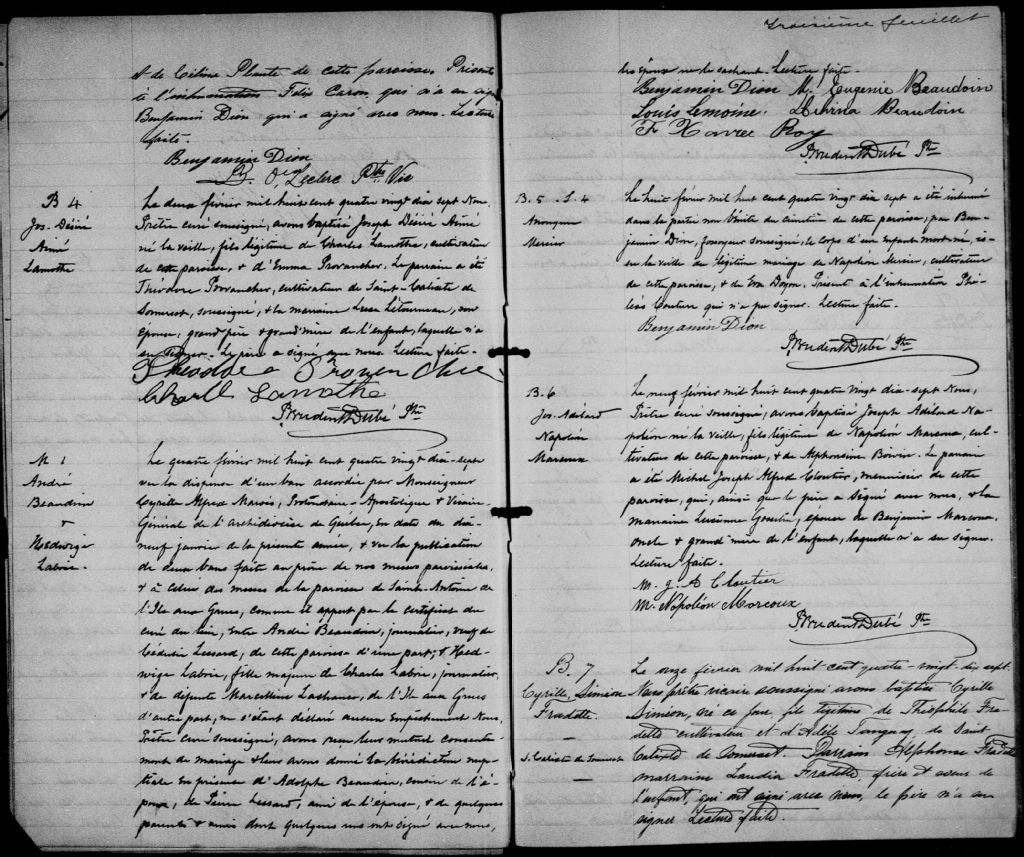 et de Célina Plante de cette paroisse. Présents
à l'inhumation Félix Caron, qui n'a su signer
Benjamin Dion qui a signé avec nous. Lecture
faite.
Benjamin Dion
Leclerc Ptre Vic
B 4
Jos. Désiré
Aimé
Lamothe
Le deux février mil huit cent quatre vingt dix sept Nous
Prêtre curé soussigné, avons baptisé Joseph Désiré Aimé
né la veille, fils légitime de Charles Lamothe, cultivateur
de cette paroisse, & d'Emma Provancher. Le parrain a été
Théodore Provancher, cultivateur de Saint-Calixte de
Somerset, soussigné, & la marraine Luce Létourneau, son
épouse, grand'père & grand'mère de l'enfant, laquelle n'a
su signer. Le père a signé avec nous. Lecture faite.
Theodore Provenche
Charll Lamothe
Prudent Dubé Ptre
M 1
André
Beaudoin
&
Hedwige
Labrie.
Le quatre février mil huit cent quatre vingt dix-sept
vu la dispense d'un ban accordée par Monseigneur
Cyrille Alfred Marois, Protonotaire Apostolique & Vicaire
Général de l'archidiocèse de Québec, en date du dix-
neuf janvier de la présente année, & vu la publication
de deux bans faite au prône de nos messes paroissiales,
& à celui des messes de la paroisse de Saint-Antoine de
l'Ile aux Grues, comme il appert par le certificat du
curé du lieu, entre André Beaudoin, journalier, veuf de
Lessard, de cette paroisse d'une part; & Hed-
wige Labrie, fille majeure de Charles Labrie, journalier,
& de défunte Marcelline Lachance, de l'Ile aux Grues
d'autre part, ne s'étant déclaré aucun empêchement Nous,
Prêtre curé soussigné, avons reçu leur mutuel consente-
ment de mariage & leur avons donné la bénédiction nup-
tiale en présence d'Adolphe Beaudoin, cousin de l'é-
poux, de Pierre Lessard, ami de l'épouse, & de quelques
parents & amis dont quelques uns ont signé avec nous,
troisième feuillet
les époux ne le sachant. Lecture faite.
Benjamin Dion M. Eugenie Beaudoin
Louis Lemoine. Beaudoin
F Xavier Roy
Prudent Dubé Ptre
B. 5 - S. 4
Anonyme
Mercier
Le huit février mil huit cent quatre vingt dix sept a été inhumé
dans la partie non bénite du cimetière de cette paroisse, par Ben-
jamin Dion, fossoyeur soussigné, le corps d'un enfant mort-né, is-
su la veille du légitime mariage de Napoléon Mercier, cultivateur
de cette paroisse, & de Eva Doyon. Présent à l'inhumation Phi-
léas Couture qui n'a pu signer. Lecture faite.
Benjamin Dion
Prudent Dubé Ptre
B. 6
Jos. Adélard
Napoléon
Marcoux
Le neuf février mil huit cent quatre vingt dix-sept Nous,
Prêtre curé soussigné, avons baptisé Joseph Adélard Na-
poléon né la veille, fils légitime de Napoléon Marcoux, cul-
tivateur de cette paroisse, & de Alphonsine Boivin. Le parrain
a été Michel Joseph Alfred Cloutier, menuisier de cette
paroisse, qui, ainsi que le père a signé avec nous, & la
marraine épouse de Benjamin Marcoux,
oncle & grand'mère de l'enfant, laquelle n'a su signer.
Lecture faite.
M. J. A Cloutier
M. Napoléon Marcoux
Prudent Dubé Ptre
B. 7
Cyrille, Siméon
Fradette.
—
S. Calixte de Somerset
—
Le onze février mil huit cent quatre-vingt-dix sept.
Nous prêtre vicaire soussigné avons baptisé Cyrille
Siméon, né ce jour, fils légitime de Théophile Fra-
dette cultivateur et d'Adèle Tanguay de Saint
Calixte de Somerset. Parrain Alphonse Fradette
marraine Fradette, frère et soeur de
l'enfant, qui ont signé avec nous, le père n'a su
signer Lecture faite.